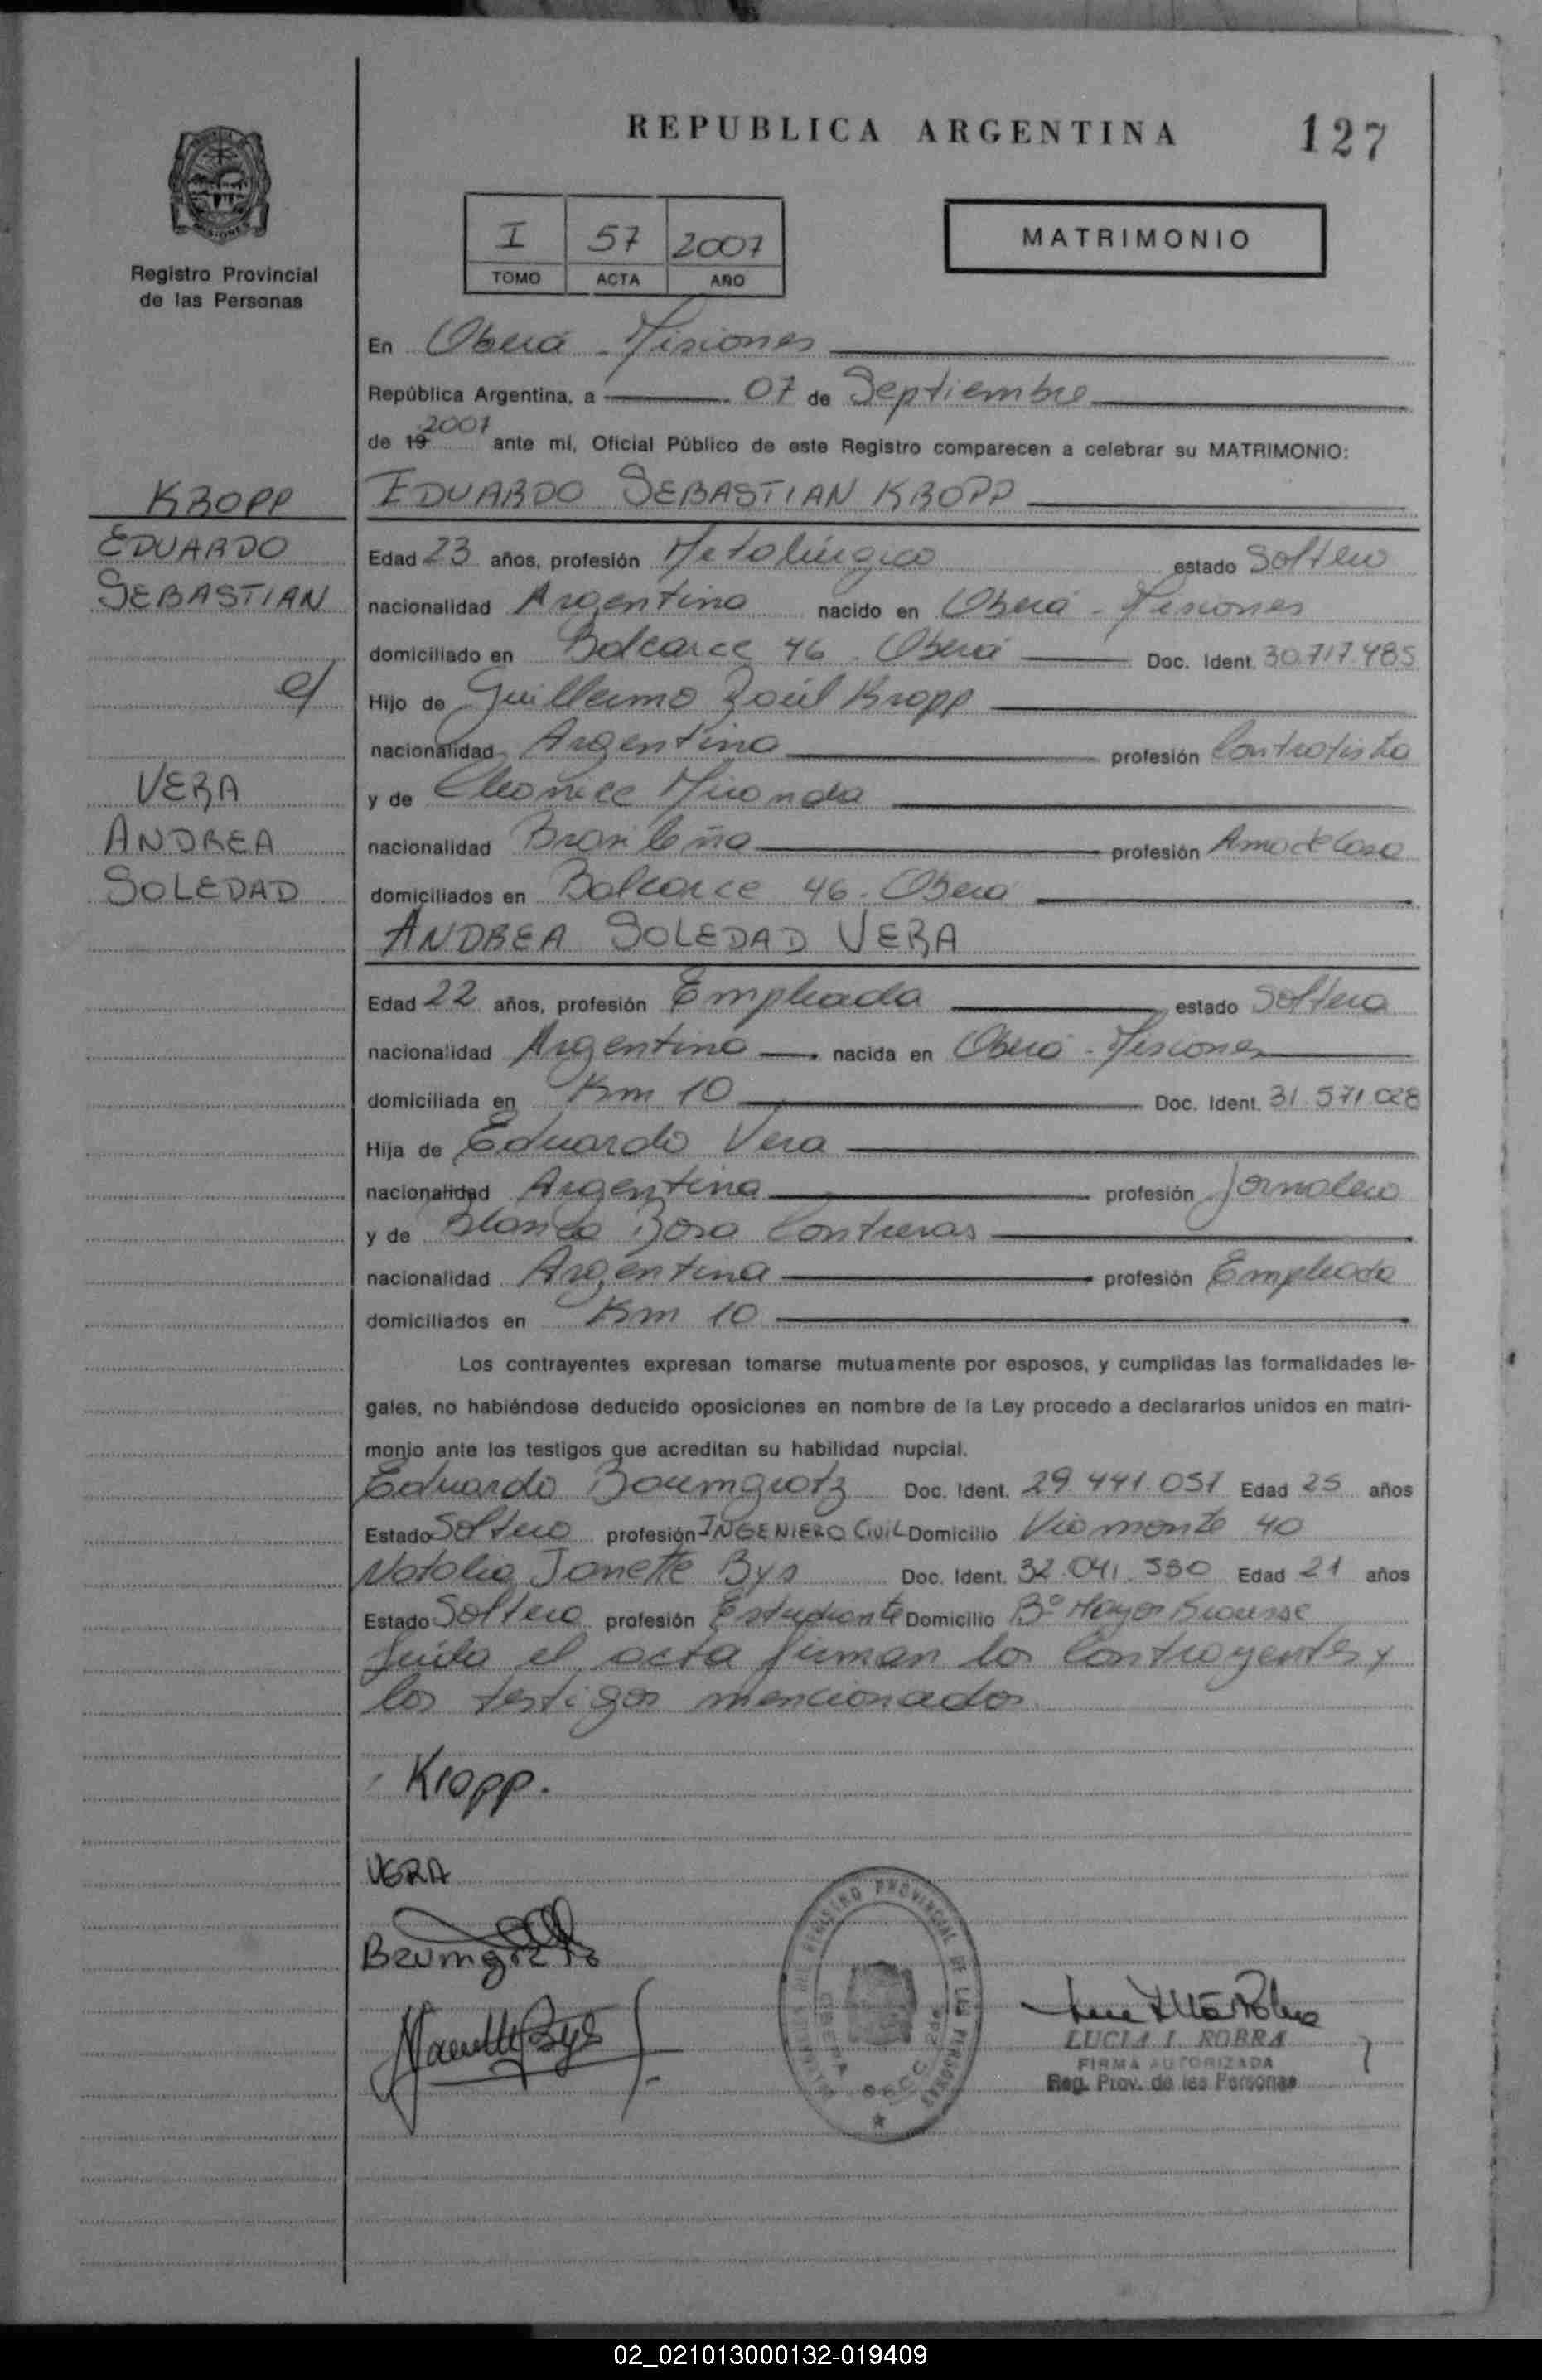 REPUBLICA ARGENTINA
127
I 57 2007
TOMO ACTA AÑO
MATRIMONIO
Registro Provincial
de las Personas
En Oberá - Misiones
República Argentina, a 07 de Septiembre
de 19 2007 ante mí, Oficial Público de este Registro comparecen a celebrar su MATRIMONIO:
KROPP
EDUARDO
SEBASTIAN
c/
VERA
ANDREA
SOLEDAD
EDUARDO SEBASTIAN KROPP
Edad 23 años, profesión Metalúrgico estado Soltero
nacionalidad Argentina nacido en Oberá - Misiones
domiciliado en Balcarce 46 . Oberá Doc. Ident. 30.717.485
Hijo de Guillermo Raúl Kropp
nacionalidad Argentina profesión Contratista
y de Cleonice Miranda
nacionalidad Brasileña profesión Ama de Casa
domiciliados en Balcarce 46 . Oberá
ANDREA SOLEDAD VERA
Edad 22 años, profesión Empleada estado Soltera
nacionalidad Argentina nacida en Oberá - Misiones
domiciliada en Km 10 Doc. Ident. 31.571.028
Hija de Eduardo Vera
nacionalidad Argentina profesión Jornalero
y de Blanca Rosa Contreras
nacionalidad Argentina profesión Empleada
domiciliados en Km 10
Los contrayentes expresan tomarse mutuamente por esposos, y cumplidas las formalidades le-
gales, no habiéndose deducido oposiciones en nombre de la Ley procedo a declararlos unidos en matri-
monio ante los testigos que acreditan su habilidad nupcial.
Eduardo Baumgratz Doc. Ident. 29.441.051 Edad 25 años
Estado Soltero profesión INGENIERO CIVIL Domicilio Viamonte 40
Natalia Janette Bys Doc. Ident. 32.041.530 Edad 21 años
Estado Soltera profesión Estudiante Domicilio Bº Mayor Krausse
Leída el acta firman los Contrayentes y
los testigos mencionados
Kropp.
VERA
Baumgratz
Janette Bys
REGISTRO PROVINCIAL DE LAS PERSONAS
OBERA SECC. 2da
LUCIA I. ROBRA
FIRMA AUTORIZADA
Reg. Prov. de las Personas
02_021013000132-019409